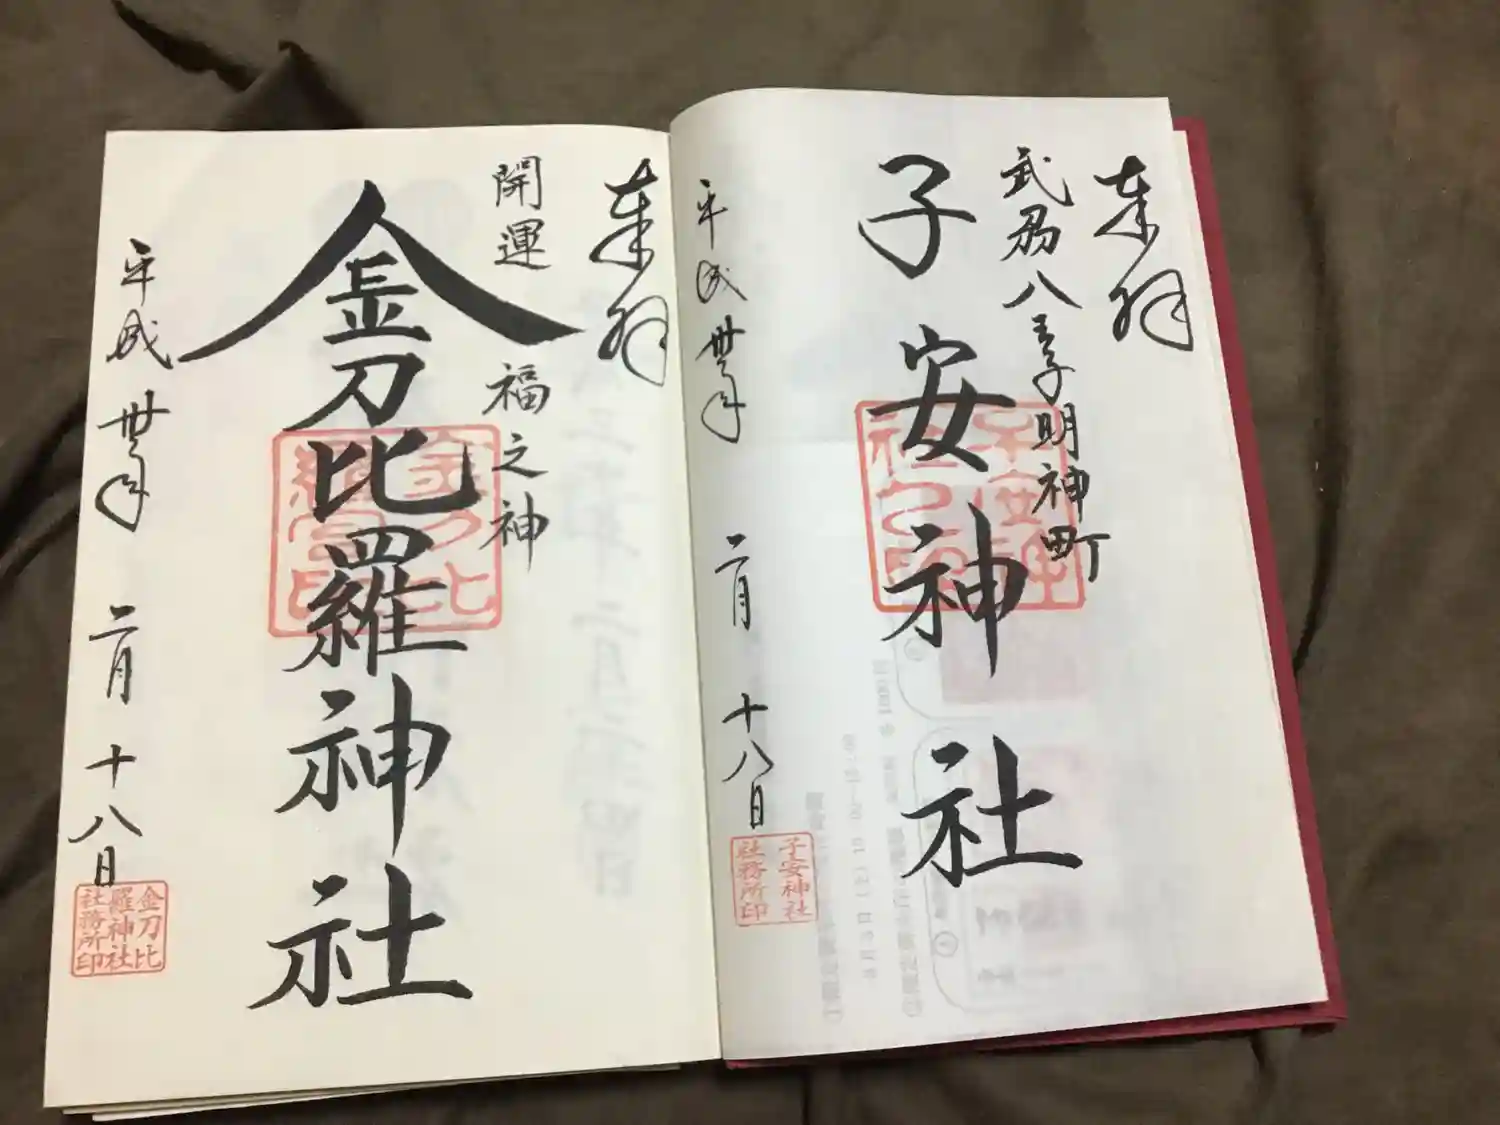 奉拝
武州八王子明神町
子安神社
平成卅年二月十八日
子安神社
社務所印
奉拝
開運 福之神
金刀比羅神社
平成卅年二月十八日
金刀比
羅神社
社務所印